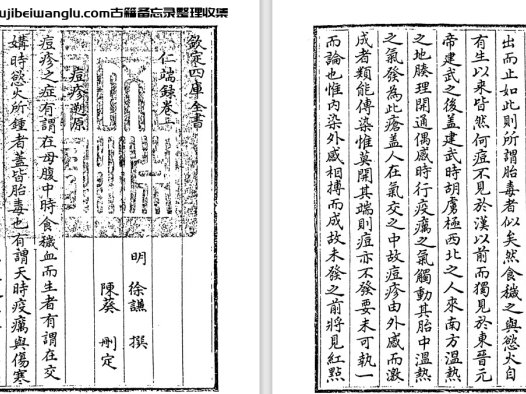 ujibeiwanglu.com古籍备忘录整理收集
欽定四庫全書
仁端錄卷一
明 徐謙 撰
陳葵 刪定
痘疹剏原
痘疹之症有謂在母腹中時食穢血而生者有謂在交
媾時慾火所鍾者蓋皆胎毒也有謂天時疫癘與傷寒
出而止如此則所謂胎毒者似矣然食穢之與慾火自
有生以來皆然何痘不見於漢以前而獨見於東晉元
帝建武之後蓋建武時胡虜極西北之人來南方溫熱
之地腠理開通偶感時行疫癘之氣觸動其胎中溫熱
之氣發為此瘡蓋人在氣交之中故痘疹由外感而激
成者類能傳染惟莫開其端則痘亦不發要未可執一
而論也惟内染外感相搏而成故未發之前將見紅點